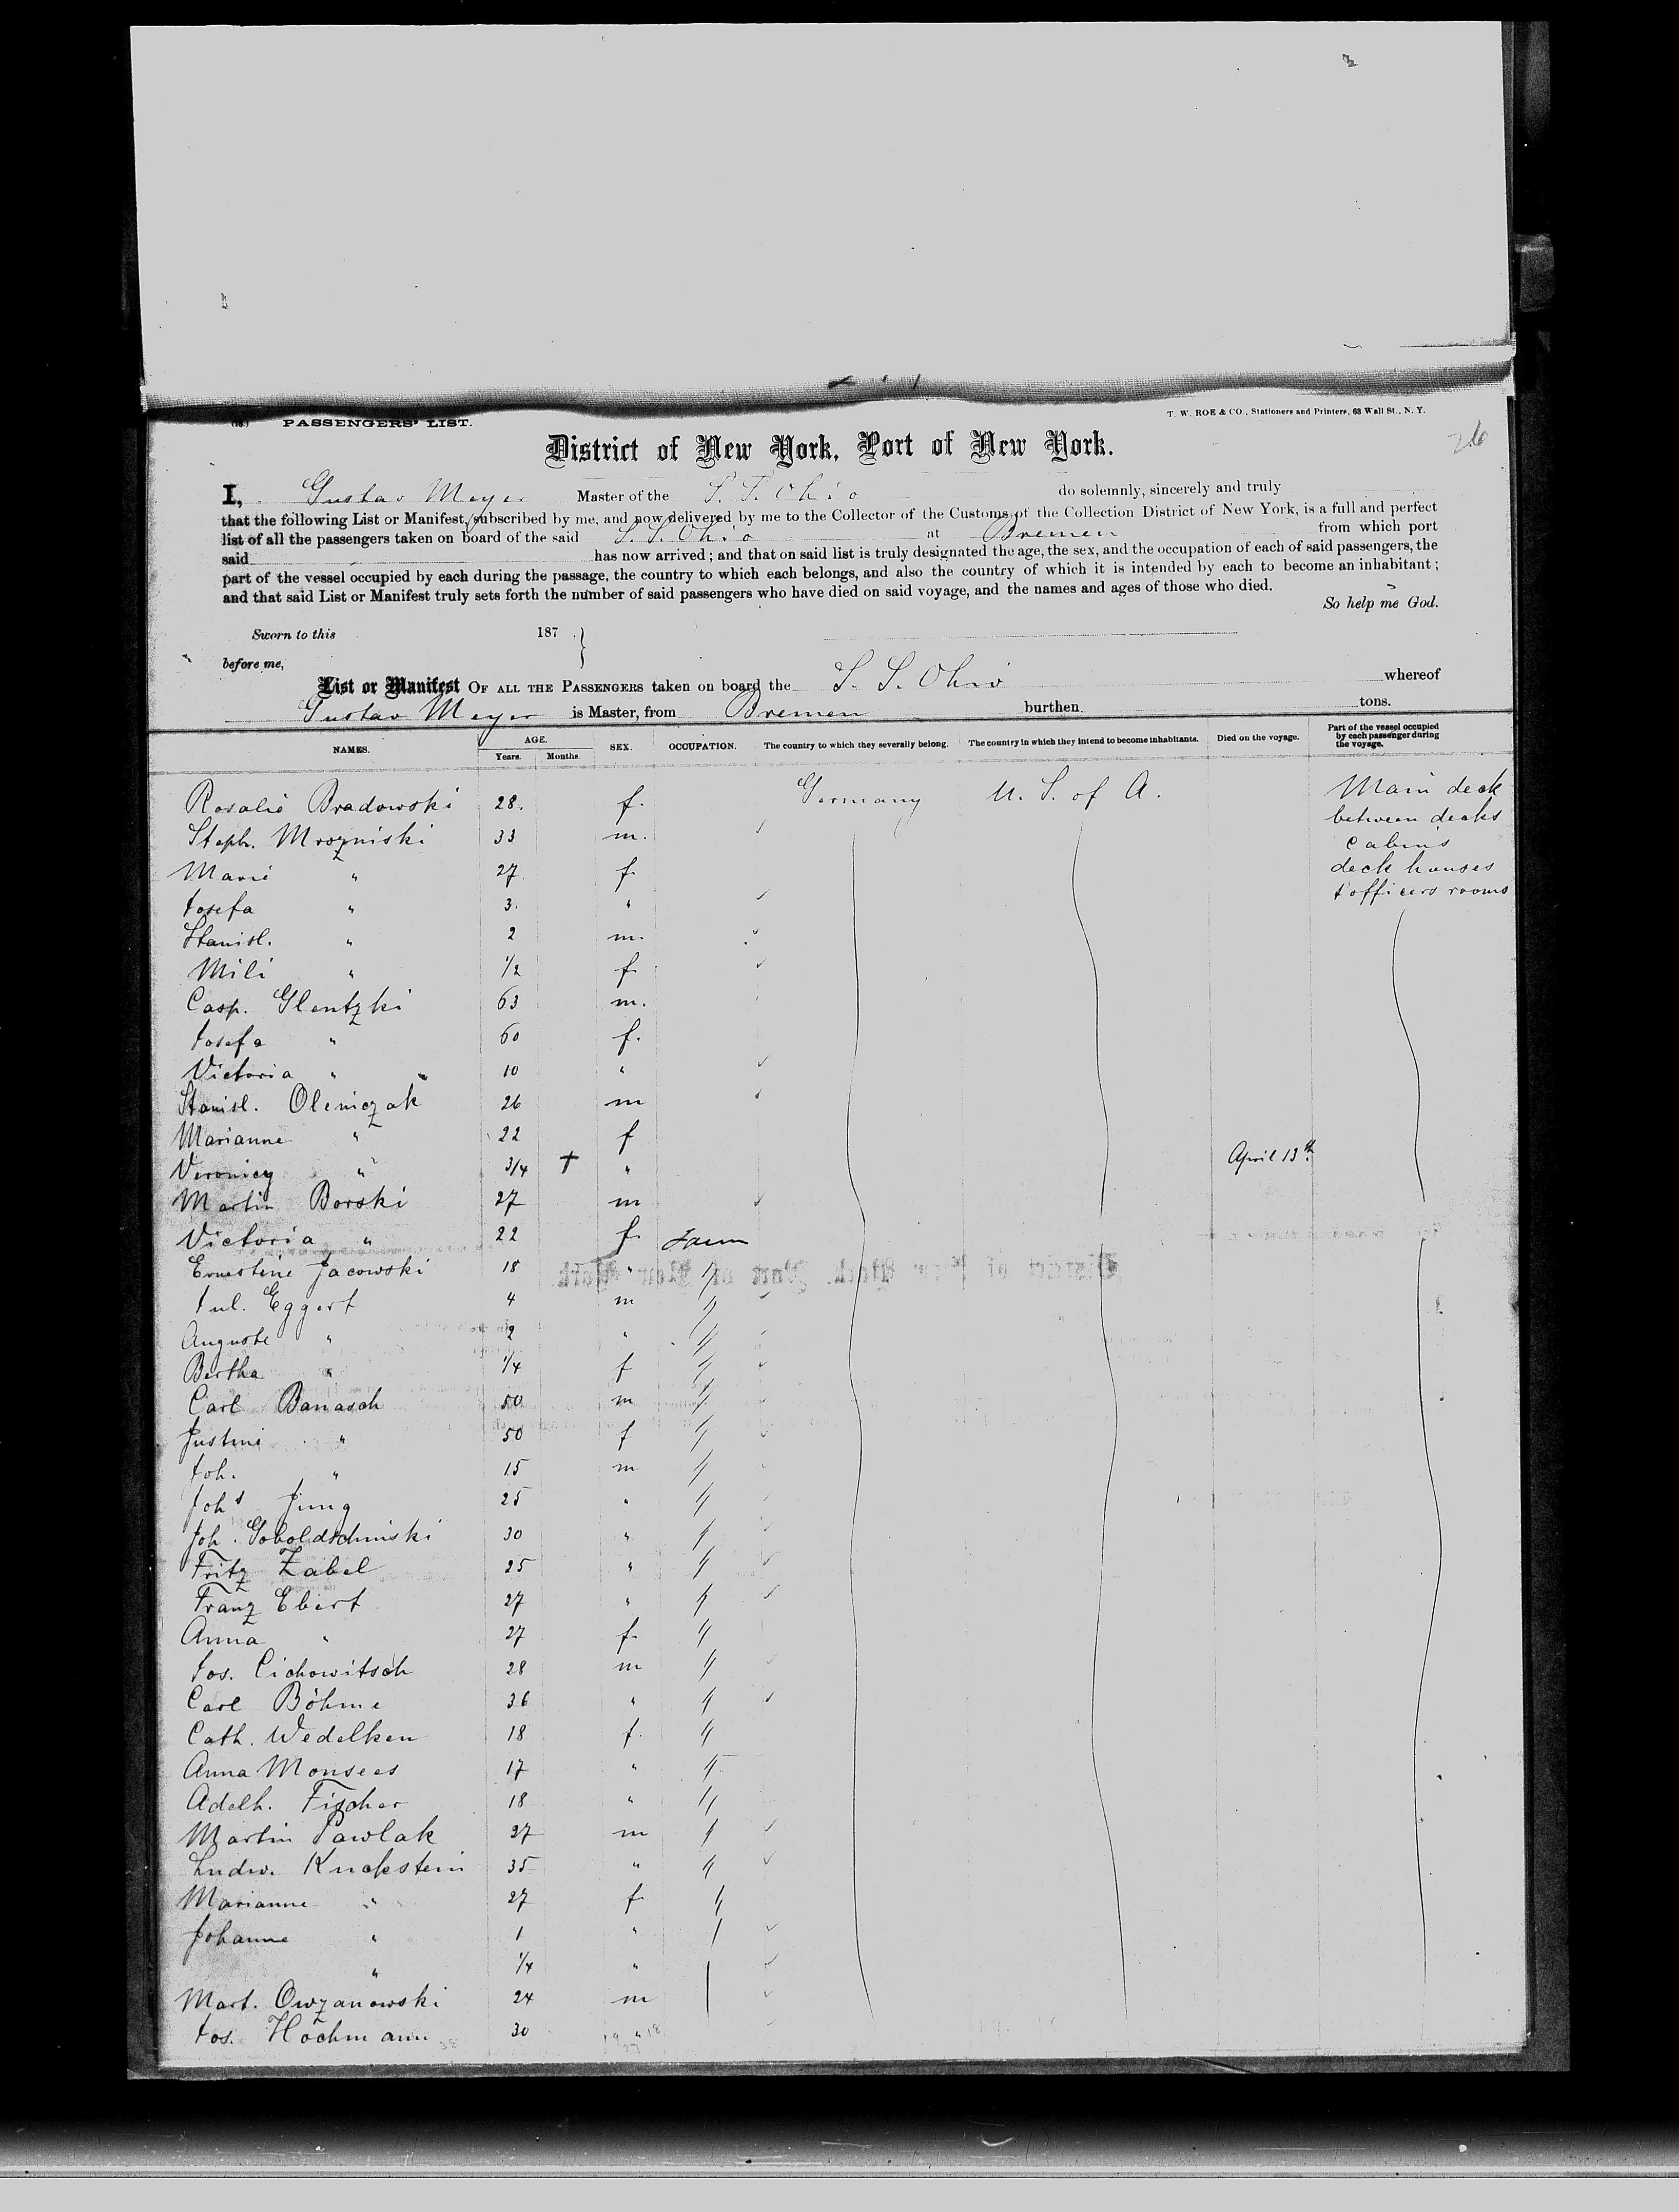 PASSENGERS' LIST.
T. W. ROE & CO., Stationers and Printers, 63 Wall St., N. Y.
26
District of New York, Port of New York.
I, Gustav Meyer Master of the S. S. Ohio do solemnly, sincerely and truly
that the following List or Manifest, subscribed by me, and now delivered by me to the Collector of the Customs of the Collection District of New York, is a full and perfect
list of all the passengers taken on board of the said S. S. Ohio at Bremen from which port
said has now arrived; and that on said list is truly designated the age, the sex, and the occupation of each of said passengers, the
part of the vessel occupied by each during the passage, the country to which each belongs, and also the country of which it is intended by each to become an inhabitant;
and that said List or Manifest truly sets forth the number of said passengers who have died on said voyage, and the names and ages of those who died.
So help me God.
Sworn to this 187
before me,
List or Manifest OF ALL THE PASSENGERS taken on board the S. S. Ohio whereof
Gustav Meyer is Master, from Bremen burthen tons.
NAMES. AGE. Years. Months. SEX. OCCUPATION. The country to which they severally belong. The country in which they intend to become inhabitants. Died on the voyage. Part of the vessel occupied by each passenger during the voyage.
Rosalie Bradowski 28. f. Germany U. S. of A. Main deck
between decks
Steph. Mrozniski 33 m. cabins
Marie " 27 f. deck houses
Josefa " 3. " & officers rooms
Stanisl. " 2 m.
Mili " 1/2 f.
Casp. Glentzki 63 m.
Josefa " 60 f.
Victoria " 10 "
Stanisl. Oleniczak 26 m
Marianne " 22 f
" 3/4 † " April 13th
Martin Borski 27 m
Victoria " 22 f.
Ernstine Jacowski 18 " "
Jul. Eggert 4 m "
Auguste " 2 " "
Bertha " 1/4 f "
Carl Banasch 50 m "
Justine " 50 f "
Joh. " 15 m "
Johs Jung 25 " "
Joh. Goboldschinski 30 " "
Fritz Zabel 25 " "
Franz Ebert 27 " "
Anna " 27 f. "
Jos. Cichowitsch 28 m "
Carl Böhme 36 " "
Cath. Wedelken 18 f. "
Anna Monsees 17 " "
Adelh. Fischer 18 " "
Martin Pawlak 27 m "
Ludw. Kuckstein 35 " "
Marianne " 27 f "
Johanne " 1 "
" 1/4 "
Mart. Owzanowski 24 m
Jos. Hochmann 30 "